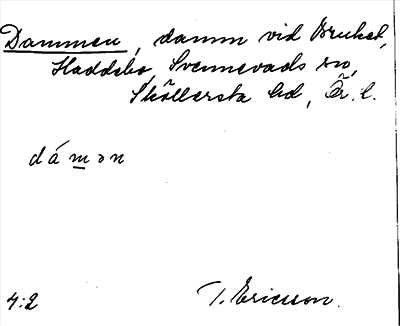 Dammen, damm vid Bruket,
Haddebo, Svennevads sn,
Sköllersta hd, Ör. l.
dámən
4:2 T. Ericsson.